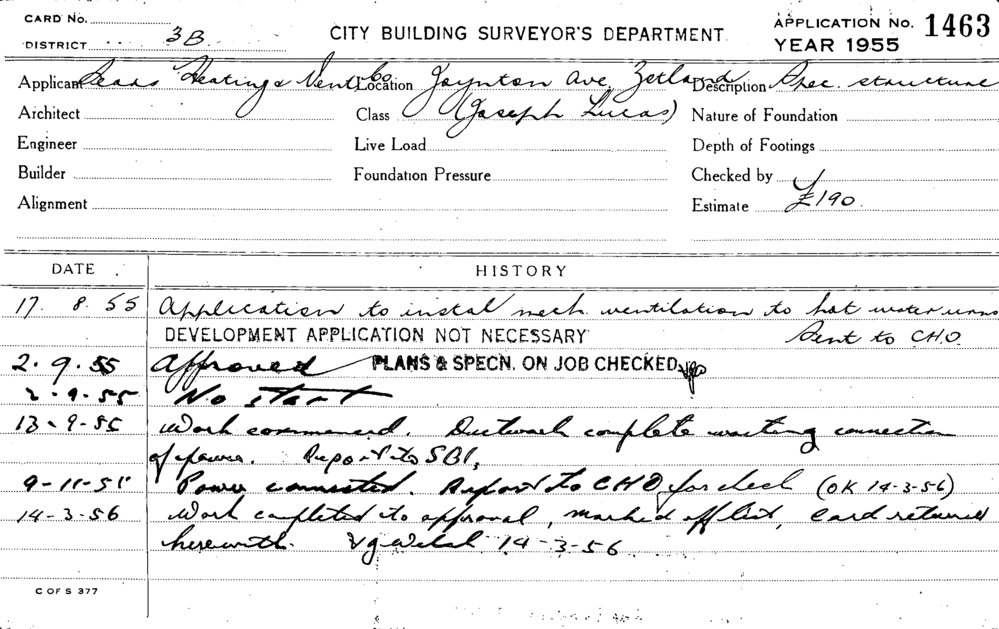 CARD No.
DISTRICT 3B
CITY BUILDING SURVEYOR'S DEPARTMENT
APPLICATION No. 1463
YEAR 1955
Applicant Sears Heating & Vent Co Location Joynton Ave, Zetland Description Spec. structure
Architect Class (Joseph Lucas) Nature of Foundation
Engineer Live Load Depth of Footings
Builder Foundation Pressure Checked by
Alignment Estimate £190
DATE HISTORY
17. 8. 55 Application to instal mech. ventilation to hot water urns
DEVELOPMENT APPLICATION NOT NECESSARY Sent to C.H.O.
2. 9. 55 Approved PLANS & SPECN. ON JOB CHECKED
2. 9. 55 No start
13-9-55 Work commenced. Ductwork complete waiting connection
of power. Report to SBI,
9-11-55 Power connected. Report to CHO for check (OK 14-3-56)
14-3-56 Work completed to approval, marked off list, card returned
herewith. 14-3-56
C OF S 377